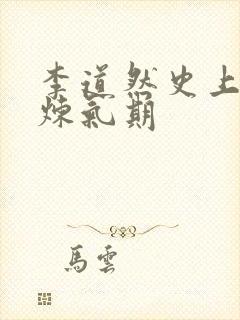 李道然史上
煉氣期
馬雲